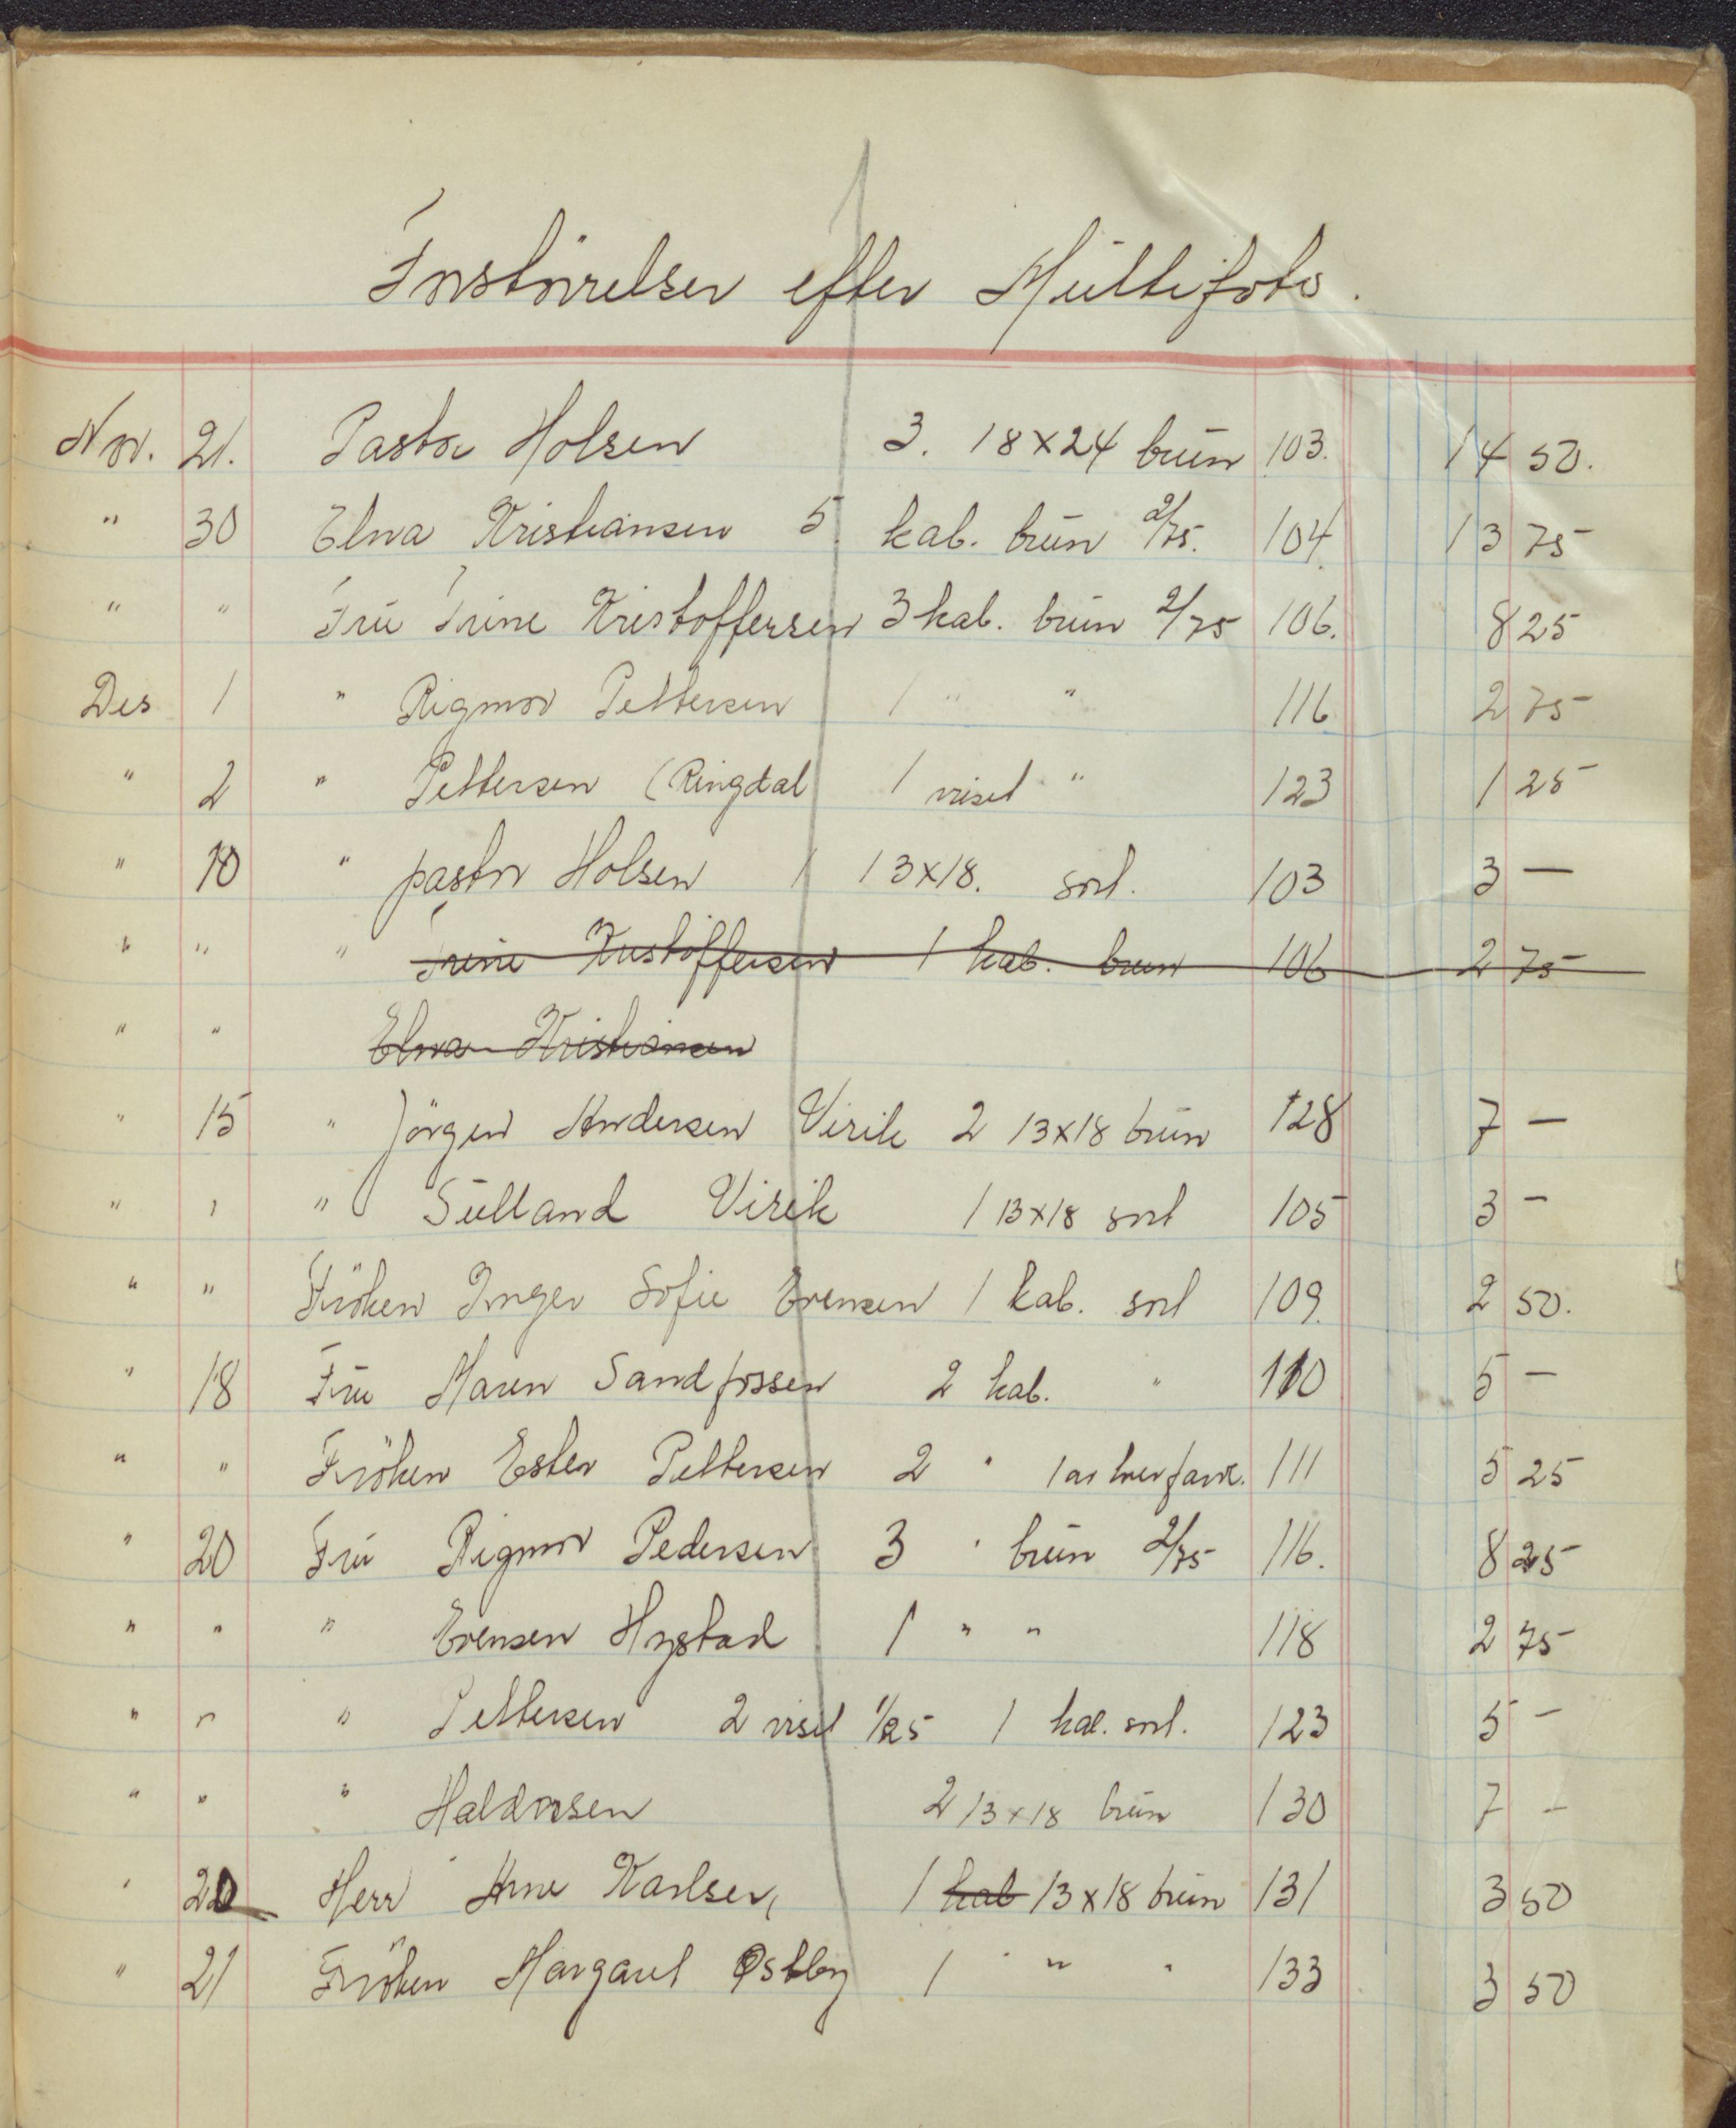 Forstörrelser efter Multifoto.
Nov. 21. Pastor Holsen 3. 18x24 brun 103. 14 50.
" 30 Elna Kristiansen 5 kab. brun 2/75. 104. 13 75
" " Fru Trine Kristoffersen 3 kab. brun 2/75 106. 8 25
Des 1 " Rigmor Pettersen 1 " " 116 2 75
" 2 " Pettersen (Ringdal 1 visit " 123 1 25
" 10 " pastor Holsen 1 13x18. sort. 103 3 —
" " " Trine Kristoffersen 1 kab. brun 106 2 75
" " Elna Kristiansen
" 15 " Jörgen Andersen Virik 2 13x18 brun 128 7 —
" " " Sulland Virik 1 13x18 sort 105 3 —
" " Fröken Inger Sofie Evensen 1 kab. sort 109. 2 50.
" 18 Fru Maren Sandfossen 2 kab. " 110 5 —
" " Fröken Ester Pettersen 2 " 1 av hver farve. 111 5 25
" 20 Fru Rigmor Pedersen 3 " brun 2/75 116. 8 25
" " " Evensen Hystad 1 " " 118 2 75
" " " Pettersen 2 visit 1/25 1 kab. sort. 123 5 —
" " " Haldorsen 2 13x18 brun 130 7 —
" 20 Herr Arne Karlsen, 1 kab 13x18 brun 131 3 50
" 21 Fröken Margaret Østby 1 " " " 133 3 50